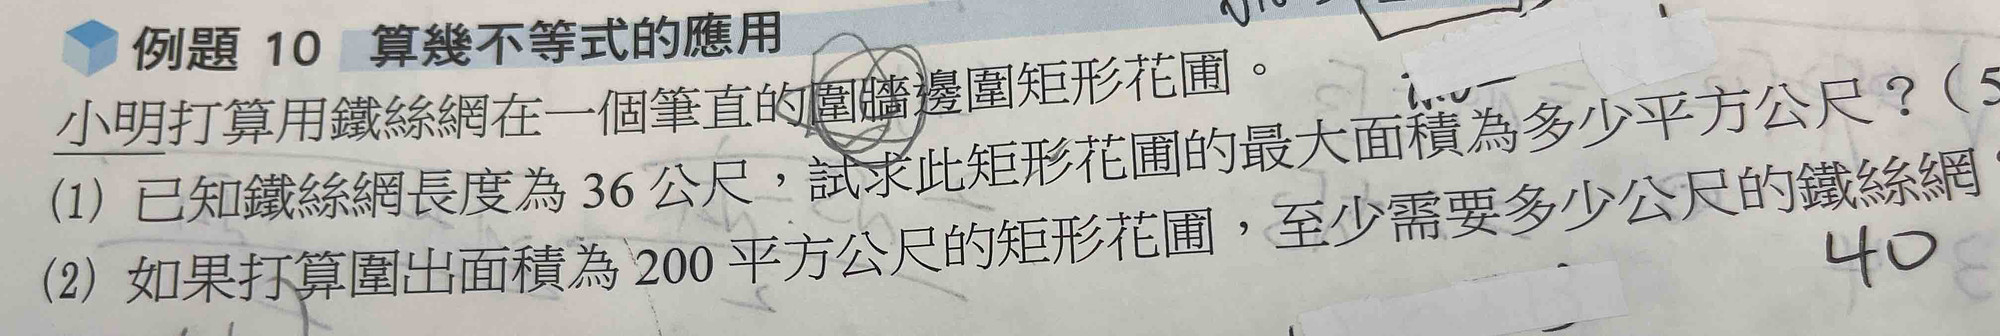 例題 10 算幾不等式的應用
小明打算用鐵絲網在一個筆直的圍牆邊圍矩形花圃。
(1) 已知鐵絲網長度為 36 公尺，試求此矩形花圃的最大面積為多少平方公尺？（5
(2) 如果打算圍出面積為 200 平方公尺的矩形花圃，至少需要多少公尺的鐵絲網
40